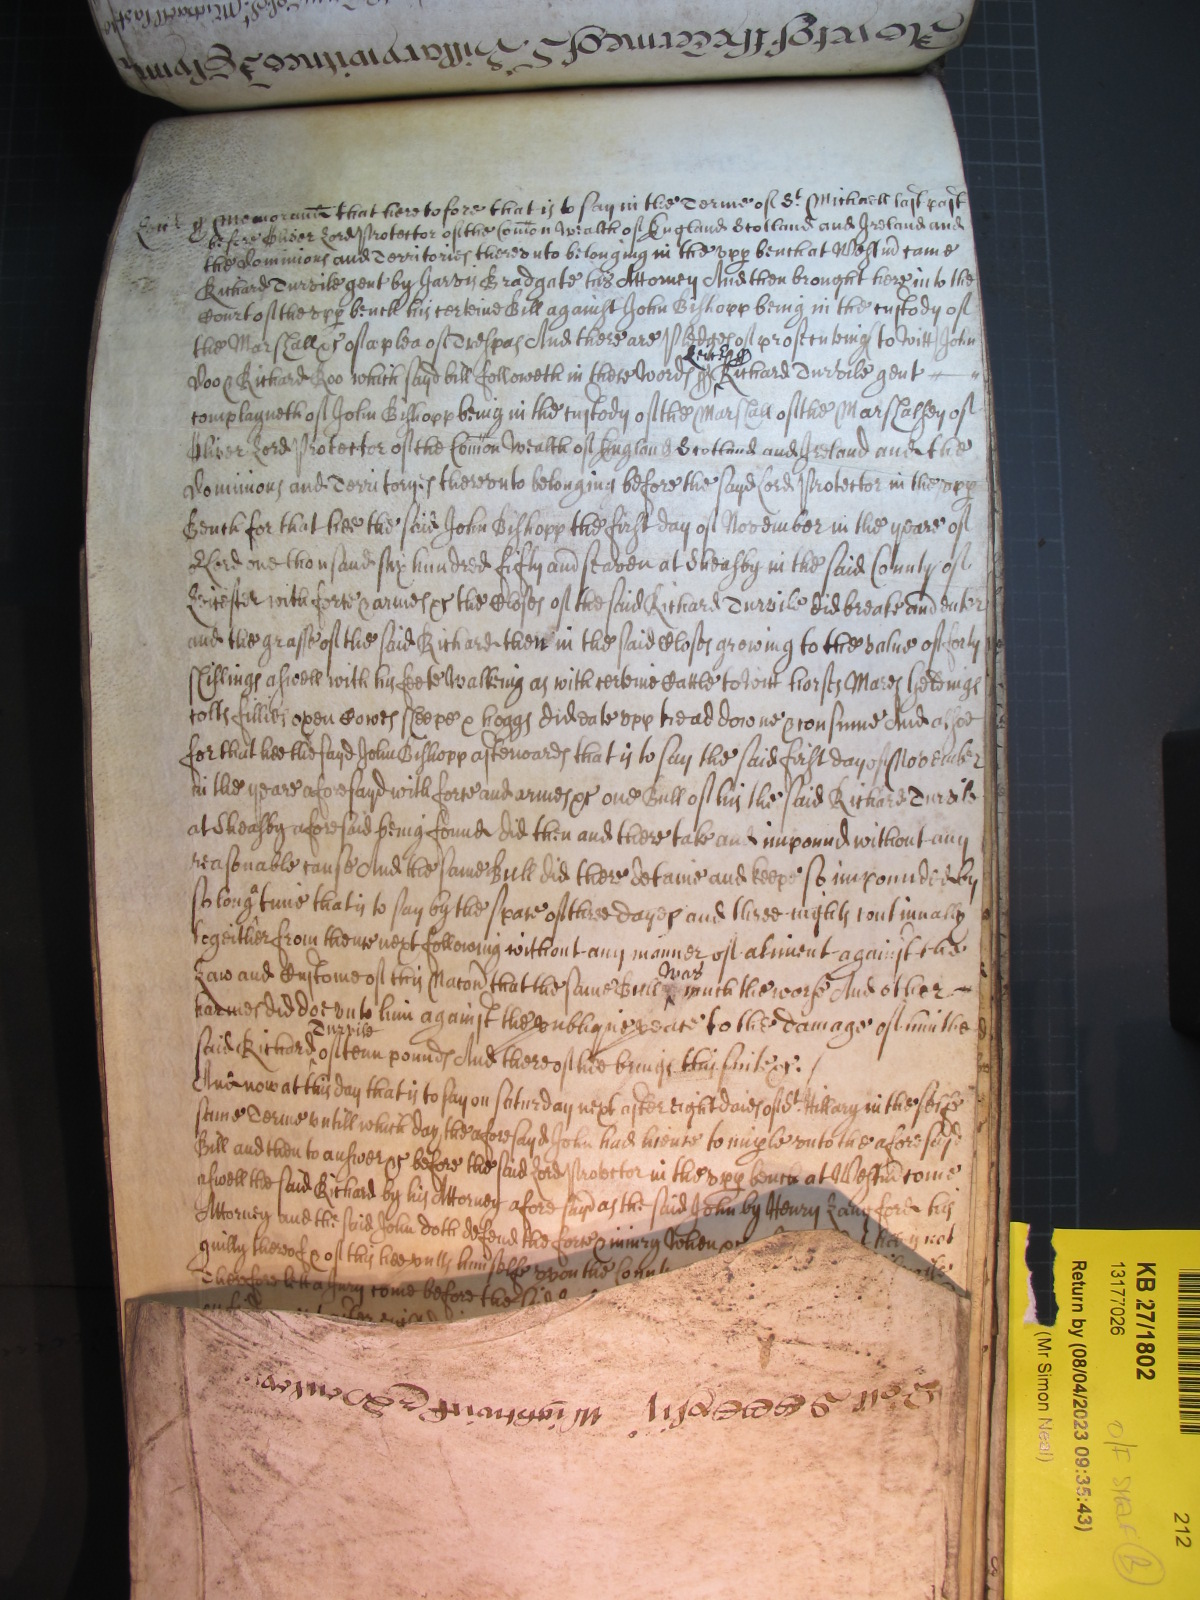 Leic ss Memorand that heretofore that is to say in the Terme of St Michaell last past
before Oliver Lord Protector of the Comon Wealth of England Scotland and Ireland and
the Dominions and Territories thereunto belonging in the upp bench at Westm came
Richard Turvile gent by Jarvis Bradgate his Attorney And then brought here into the
Court of the upp bench his certeine Bill against John Bishopp being in the custody of
the Marshall &c of a plea of Trespas And there are Pledges of prosecuting to witt John
Leic ss
Doo & Richard Roo which sayd bill followeth in these words Richard Turvile gent
complayneth of John Bishopp being in the custody of the Marshall of the Marshalsey of
Oliver Lord Protector of the Comon Wealth of England Scotland and Ireland and the
Dominions and Territoryes thereunto belonging before the sayd Lord Protector in the upp
Bench for that hee the said John Bishopp the first day of November in the yeare of
o Lord one thousand six hundred fifty and seaven at Sheasby in the said County of
Leicester with force & armes &c the Closes of the said Richard Turvile did breake and enter
and the grasse of the said Richard then in the said Closes growing to the value of forty
shillings aswell with his feete walking as with certeine Cattle to witt horses Mares Geldings
colts fillies oxen Cowes sheepe & hoggs did eate upp tread downe & consume And alsoe
for that hee the sayd John Bishopp afterwards that is to say the said first day of November
in the yeare aforesayd with force and armes &c one Bull of his the said Richard Turvile
at Sheasby aforesaid being found did then and there take and impound without any
reasonable cause And the same Bull did there detaine and keepe so impounded by
so long a time that is to say by the space of three dayes and three nights continually
togeither from thence next following without any manner of aliment against the
was
Law and Custome of this Nacon that the same Bull much the worse And other
harmes did doe unto him against the publique peace to the damage of him the
Turvile
said Richard of tenn pounds And thereof he brings this suite &c.
And now at this day that is to say on Saturday next after eight dayes of St Hillary in the selfe
same Terme untill which day the aforesayd John had licence to imple unto the aforesayd
Bill and then to answer &c before the said Lord Protector in the upp bench at Westm come
aswell the said Richard by his Attorney aforesayd as the said John by Henry Langford his
Attorney and the said John doth defend the force & injury when &c
guilty thereof & of this hee putts himselfe upon the Count
Therefore let a Jury come before the
KB 27/1802
13177026
Return by (08/04/2023 09:35:43)
(Mr Simon Neal)
212